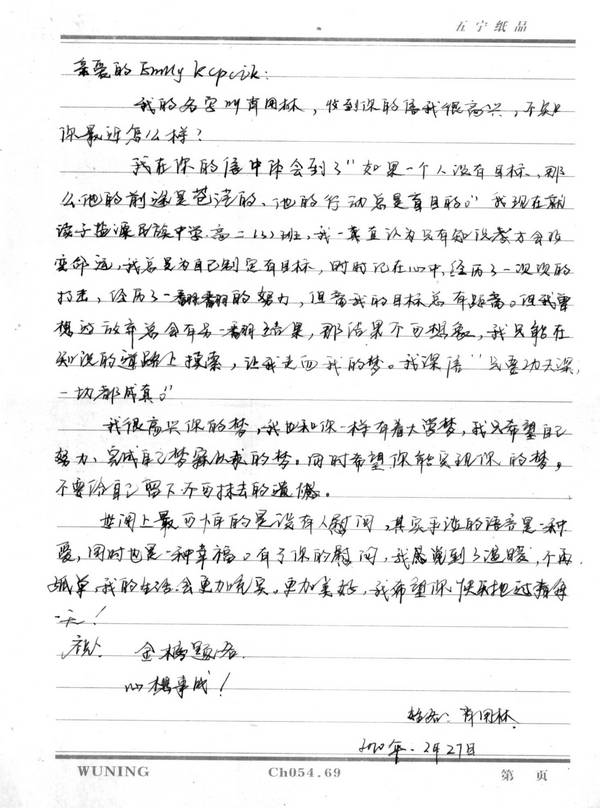 五宁纸品
亲爱的Emily Kcpcik:
我的名字叫肖用林，收到你的信我很高兴，不知
你最近怎么样？
我在你的信中体会到了"如果一个人没有目标、那
么他的前途是苍茫的、他的行动总是盲目的。"我现在就
读于盐源民族中学.高二(5)班，我一真直认为只有知识才会改
变命运，我总是为自己制定有目标，时时记在心中，经历了一次次的
打击，经历了一翻翻的努力，但离我的目标总有距离。但我要
想放弃总会有另一翻结果，那结果不可想象，我只能在
知识的道路上摸索，让我走回我的梦。我深信"只要功夫深，
一切都成真。"
我很高兴你的梦，我也和你一样有着大学梦，我只希望自己
努力、完成自己梦的梦。同时希望你能实现你的梦。
不要给自己留下不可抹去的遗憾。
世间上最可怕的是没有人慰问，其实手渡的语言是一种
爱，同时也是一种幸福。有了你的慰问，我感觉到了温暖，不再
孤单，我的生活会更加充实。更加美好，我希望你快乐担过着每
一天！
祝： 金榜题名
心想事成！
姓名：肖用林
2010年.2月27日
WUNING Ch054.69 第 页